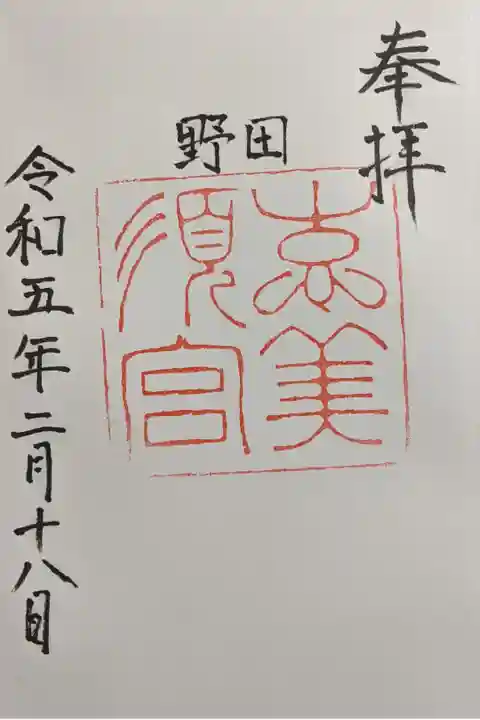 奉拝
野田
恵美須宮
令和五年二月十八日